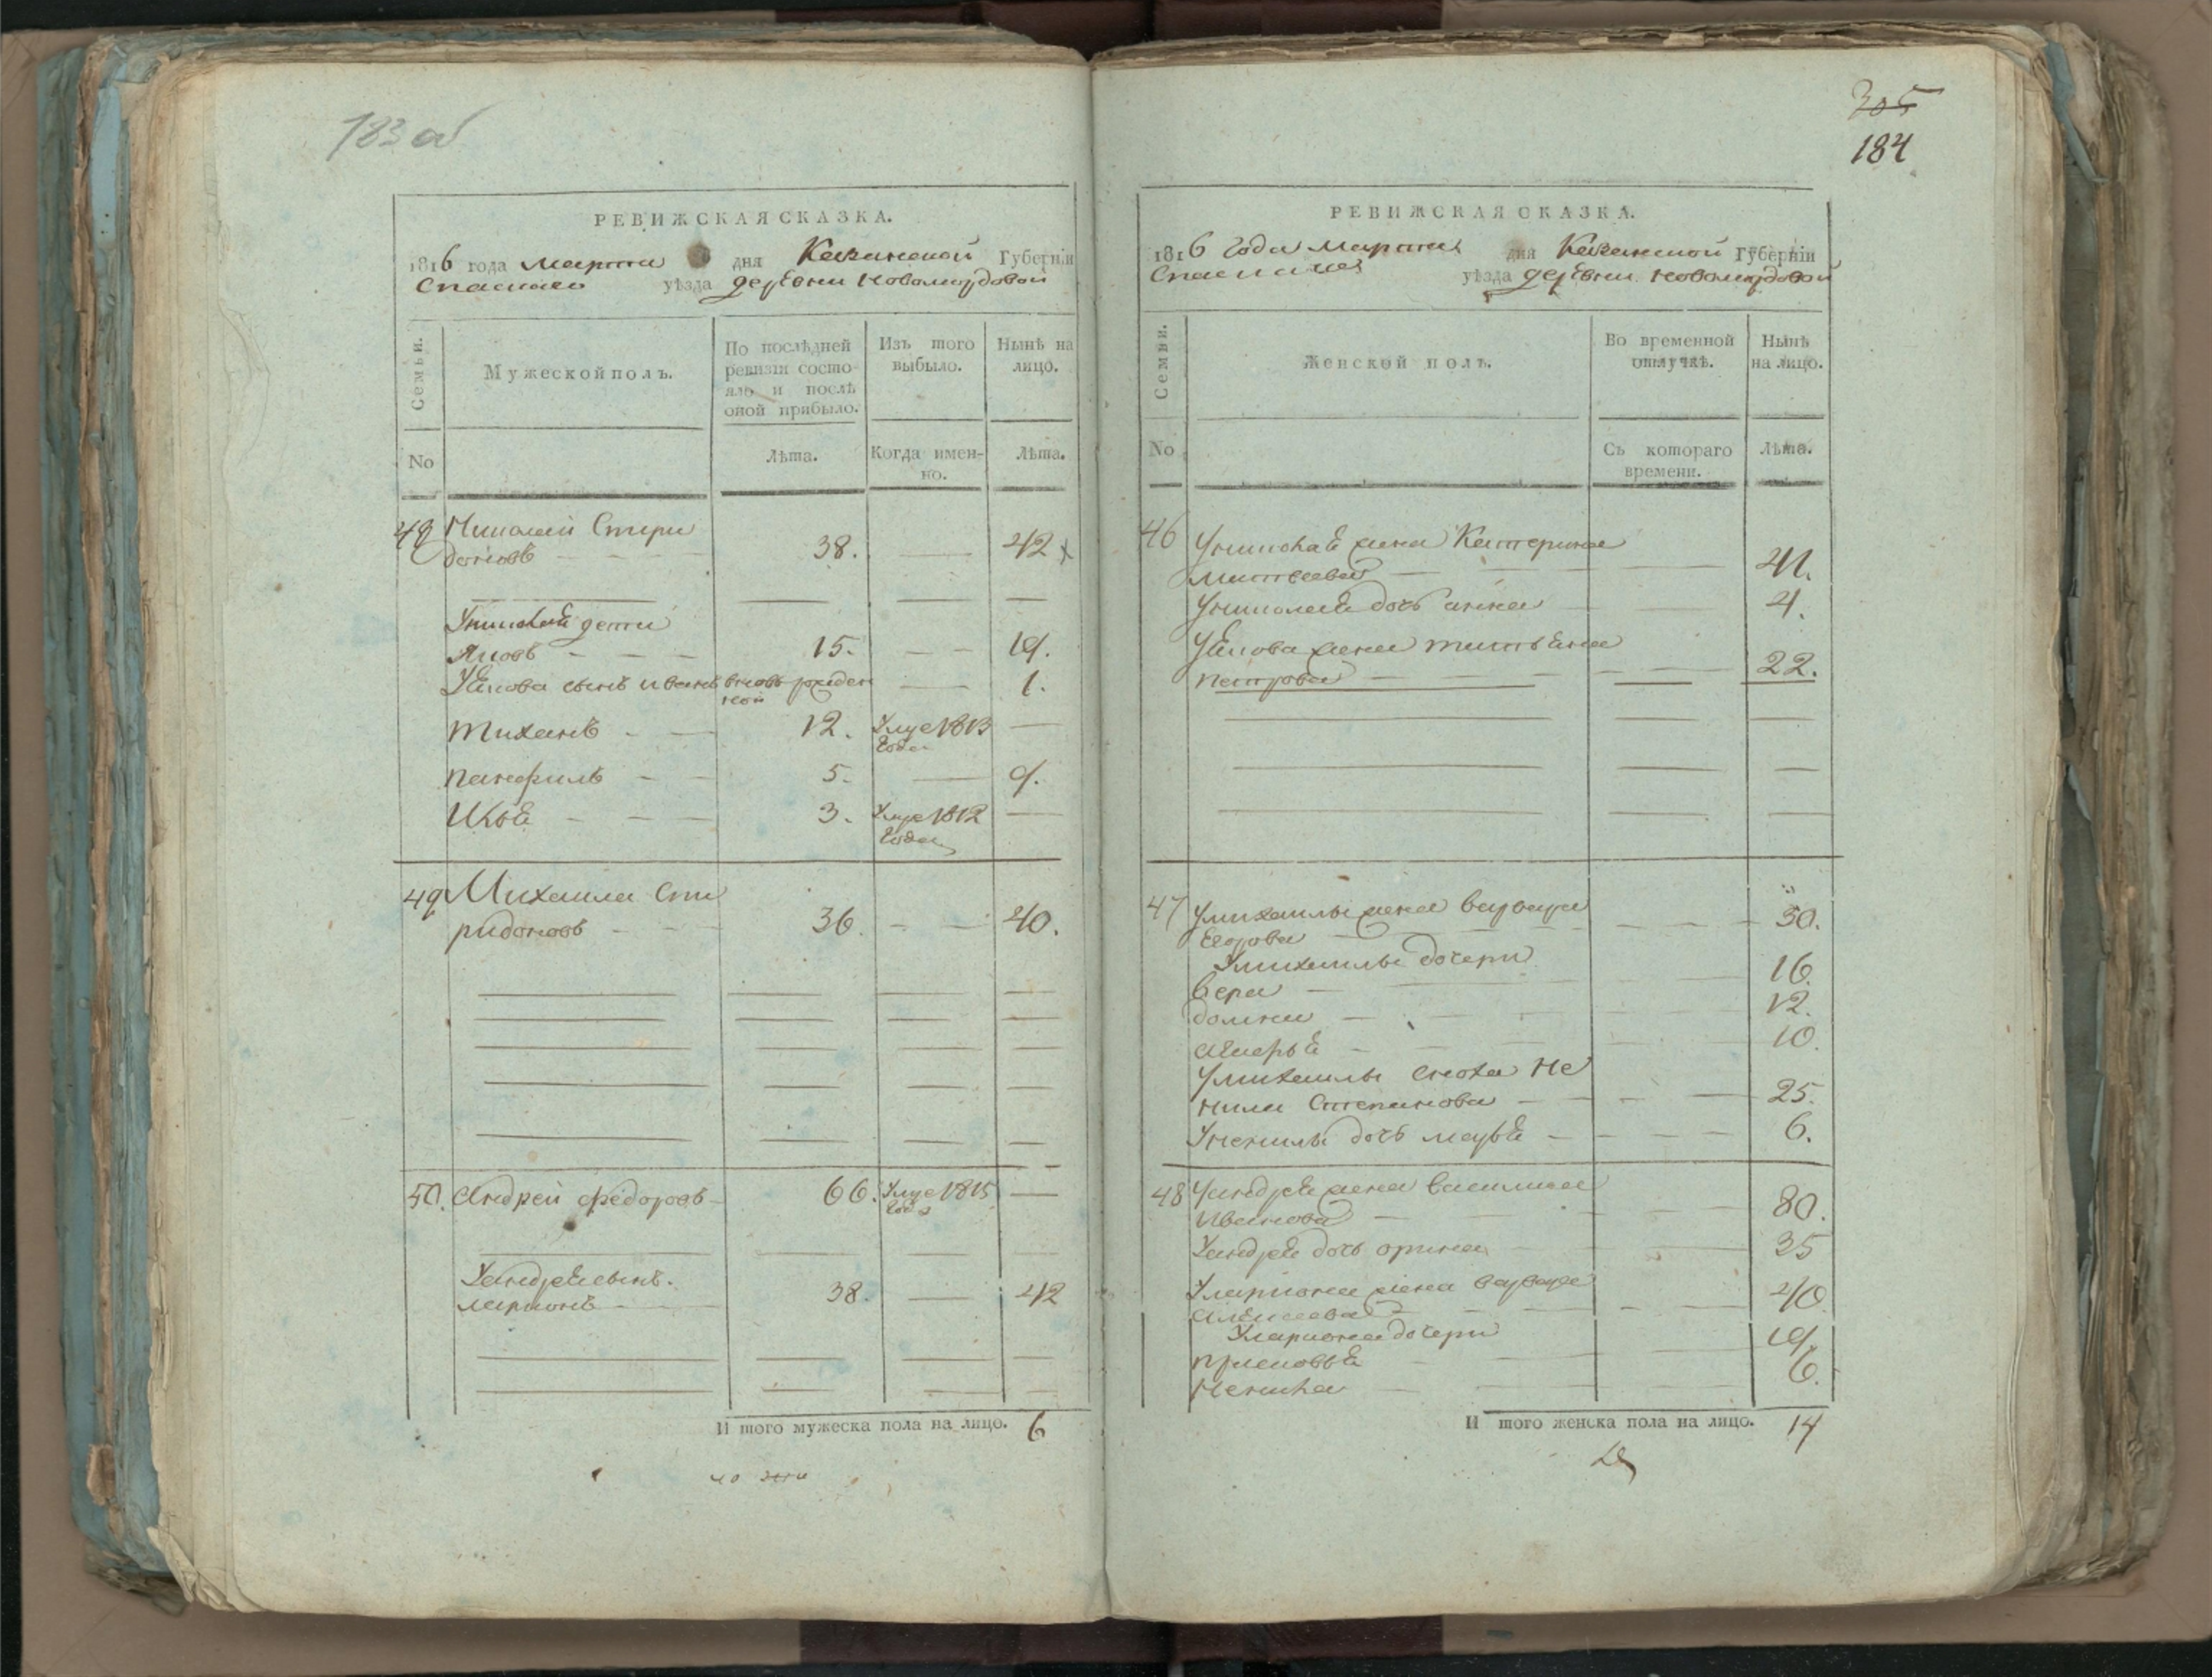 183 об
РЕВИЖСКАЯ СКАЗКА.
1816 года марта дня Казанской Губерніи
Спаскаго уѣзда деревни Новомордовой
Семьи.
Мужеской полъ.
По послѣдней ревизіи состояло и послѣ оной прибыло.
Изъ того выбыло.
Нынѣ на лицо.
No
Лѣта.
Когда именно.
Лѣта.
Николай Спири
доновъ 38. 42
Униколая дети
Яковъ 15. 19.
Уякова сынъ иванъ вновь рожден
ной 1.
тиханъ 12. Умре 1813
года
панфилъ 5. 9.
Илья 3. Умре 1812
года
49 Михаила Спи
ридоновъ 36. 40.
50. андрей федоровъ 66. Умре 1815
года
Уандрея сынъ.
ларионъ 38. 42
И того мужеска пола на лицо. 6
305
184
РЕВИЖСКАЯ СКАЗКА.
1816 года марта дня Казанской Губерніи
Спаскаго уѣзда деревни Новомордовой
Семьи.
Женской полъ.
Во временной отлучкѣ.
Нынѣ на лицо.
No
Съ котораго времени.
Лѣта.
46 Униколая жена Катерина
матвеева 41.
Униколая дочь анна 4.
Уякова жена татьяна
петрова 22.
47 Умихаилы жена варвара
Егорова 30.
Умихаилы дочери
вера 16.
домна 12.
10.
Умихаилы сноха Не
нила Степанова 25.
Уненилы дочь марья 6.
48 Уандрея жена василиса
иванова 80.
Уандрея дочь орина 35
Улариона жена варвара
алексеева 40.
Улариона дочери
прасковья 19.
Ненила 6.
И того женска пола на лицо. 14